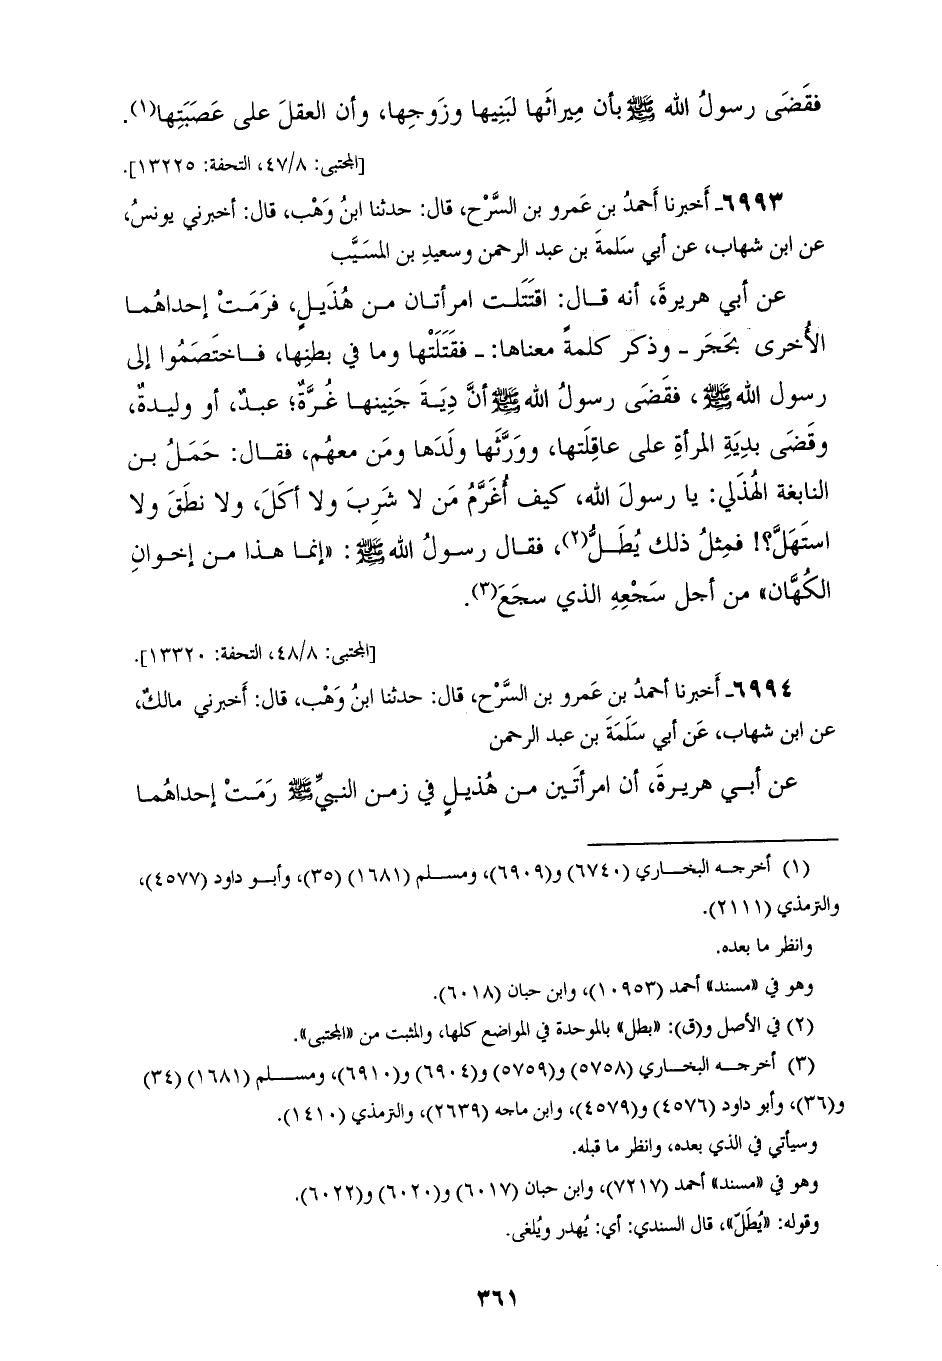 فقَضَى رسولُ الله ﷺ بأن مِيراثَها لبَنِيها وزَوجِها، وأن العقلَ على عَصَبَتِها(١).
[المجتبى: ٤٧/٨، التحفة: ١٣٢٢٥].
٦٩٩٣ـ أَخبرنا أَحمدُ بن عَمرو بن السَّرْح، قال: حدثنا ابنُ وَهْب، قال: أخبرني يونسُ،
عن ابن شهاب، عن أبي سَلمةَ بن عبد الرحمن وسعيدِ بن المسَيَّب
عن أبي هريرةَ، أنه قال: اقتَتَلت امرأتان من هُذَيلٍ، فرَمَتْ إحداهُما
الأُخرى بحَجَر ـ وذكر كلمةً معناها: ـ فقَتَلَتْها وما في بطنِها، فاختَصَمُوا إلى
رسول الله ﷺ، فقَضَى رسولُ الله ﷺ أنَّ دِيَةَ جَنِينها غُرَّةٌ؛ عبدٌ، أو وليدةٌ،
وقَضَى بدِيَةِ المرأةِ على عاقِلَتها، وورَّثَها ولَدَها ومَن معهُم، فقال: حَمَلُ بن
النابغة الهُذَلي: يا رسولَ الله، كيف أُغَرَّمُ مَن لا شَرِبَ ولا أكَلَ، ولا نطَقَ ولا
استَهَلَّ؟! فمِثلُ ذلك يُطَلُّ(٢)، فقال رسولُ الله ﷺ: «إنما هذا من إخوانِ
الكُهَّان» من أجل سَجْعِهِ الذي سجَعَ(٣).
[المجتبى: ٤٨/٨، التحفة: ١٣٣٢٠].
٦٩٩٤ـ أَخبرنا أحمدُ بن عَمرو بن السَّرْح، قال: حدثنا ابنُ وَهْب، قال: أَخبرني مالكٌ،
عن ابن شهاب، عَن أبي سَلَمَةَ بن عبد الرحمن
عن أبي هريرةَ، أن امرأتَين من هُذيلٍ في زمن النبيِّ ﷺ رَمَتْ إحداهُما
(١) أخرجه البخاري (٦٧٤٠) و(٦٩٠٩)، ومسلم (١٦٨١) (٣٥)، وأبو داود (٤٥٧٧)،
والترمذي (٢١١١).
وانظر ما بعده.
وهو في «مسند» أحمد (١٠٩٥٣)، وابن حبان (٦٠١٨).
(٢) في الأصل و(ق): «بطل» بالموحدة في المواضع كلها، والمثبت من «المجتبى».
(٣) أخرجه البخاري (٥٧٥٨) و(٥٧٥٩) و(٦٩٠٤) و(٦٩١٠)، ومسلم (١٦٨١) (٣٤)
و(٣٦)، وأبو داود (٤٥٧٦) و(٤٥٧٩)، وابن ماجه (٢٦٣٩)، والترمذي (١٤١٠).
وسيأتي في الذي بعده، وانظر ما قبله.
وهو في «مسند» أحمد (٧٢١٧)، وابن حبان (٦٠١٧) و(٦٠٢٠) و(٦٠٢٢).
وقوله: «يُطَلّ»، قال السندي: أي: يُهدر ويُلغى.
٣٦١